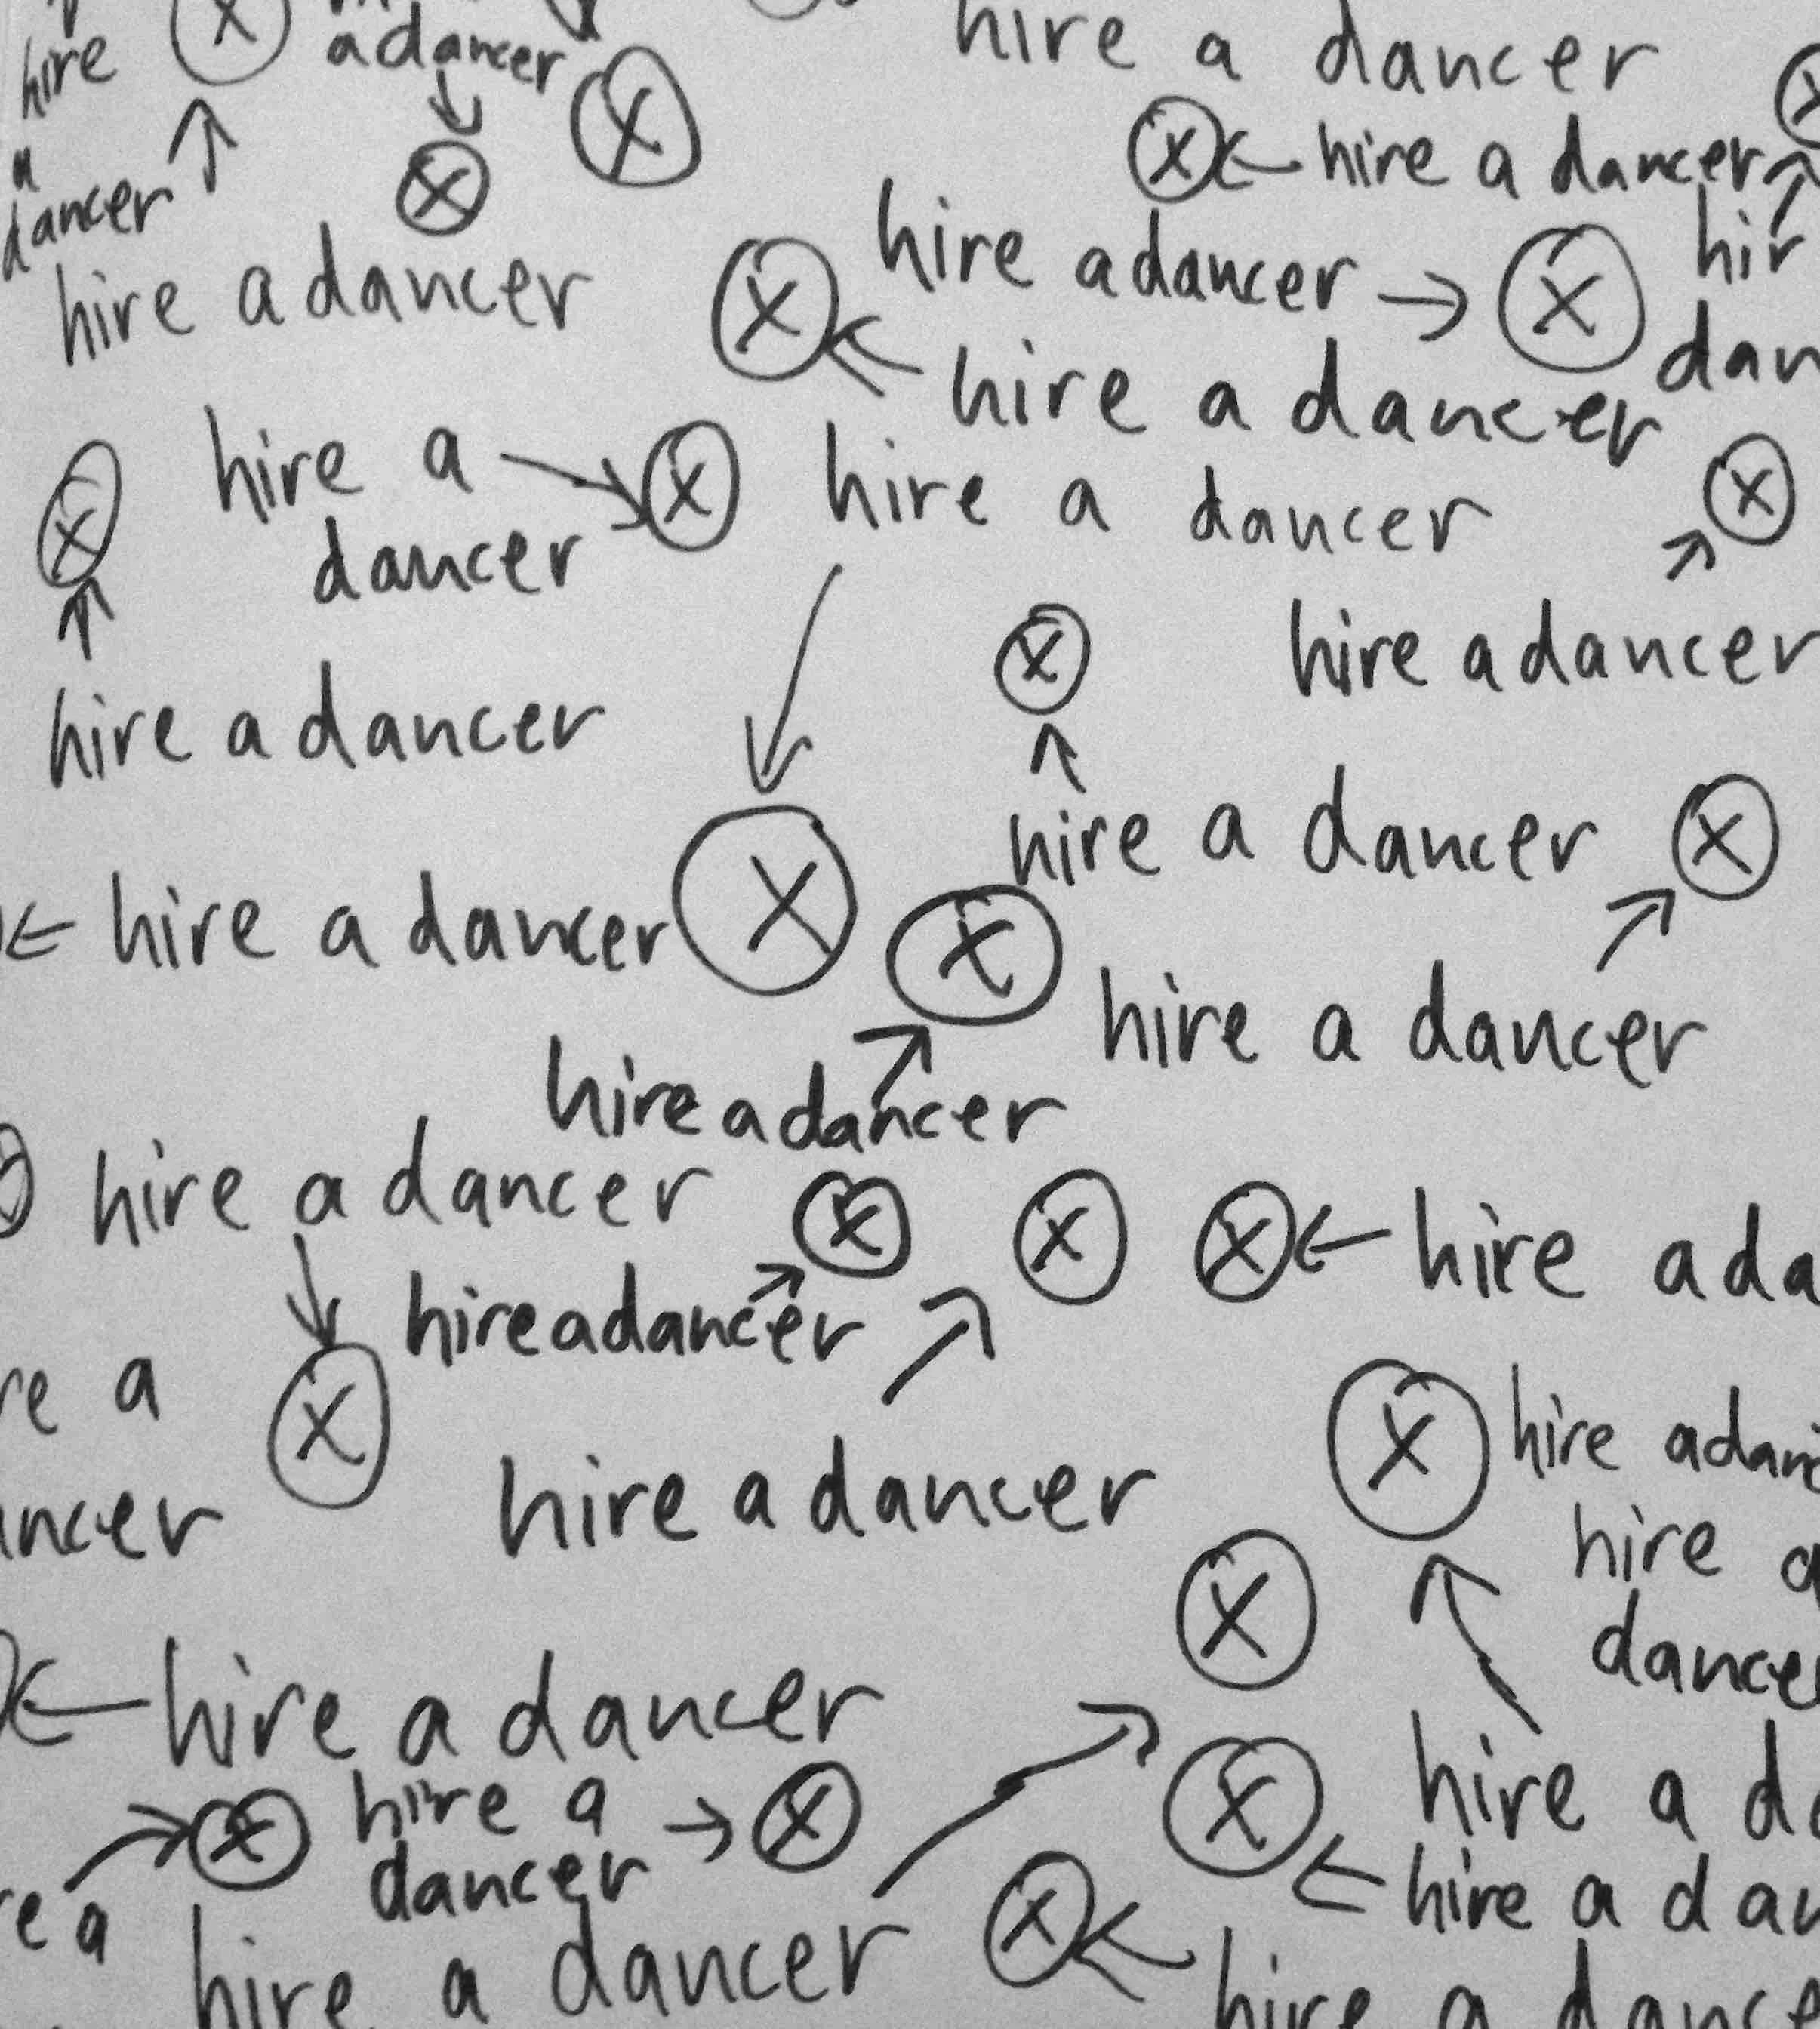 hire
a
dancer
a dancer
hire a dancer
hire a dancer
hire a dancer
hire a dancer
hire a dancer
hir
dan
hire a dancer
hire a
dancer
hire a dancer
hire a dancer
hire a dancer
hire a dancer
hire a dancer
hire a dancer
hire a dancer
hire a dancer
hire a da
hire a dancer
re a
ancer
hire a dancer
hire a danc
hire a
dance
hire a dancer
hire a d
hire a
dancer
re a
hire a dan
hire a dancer
hire a dance